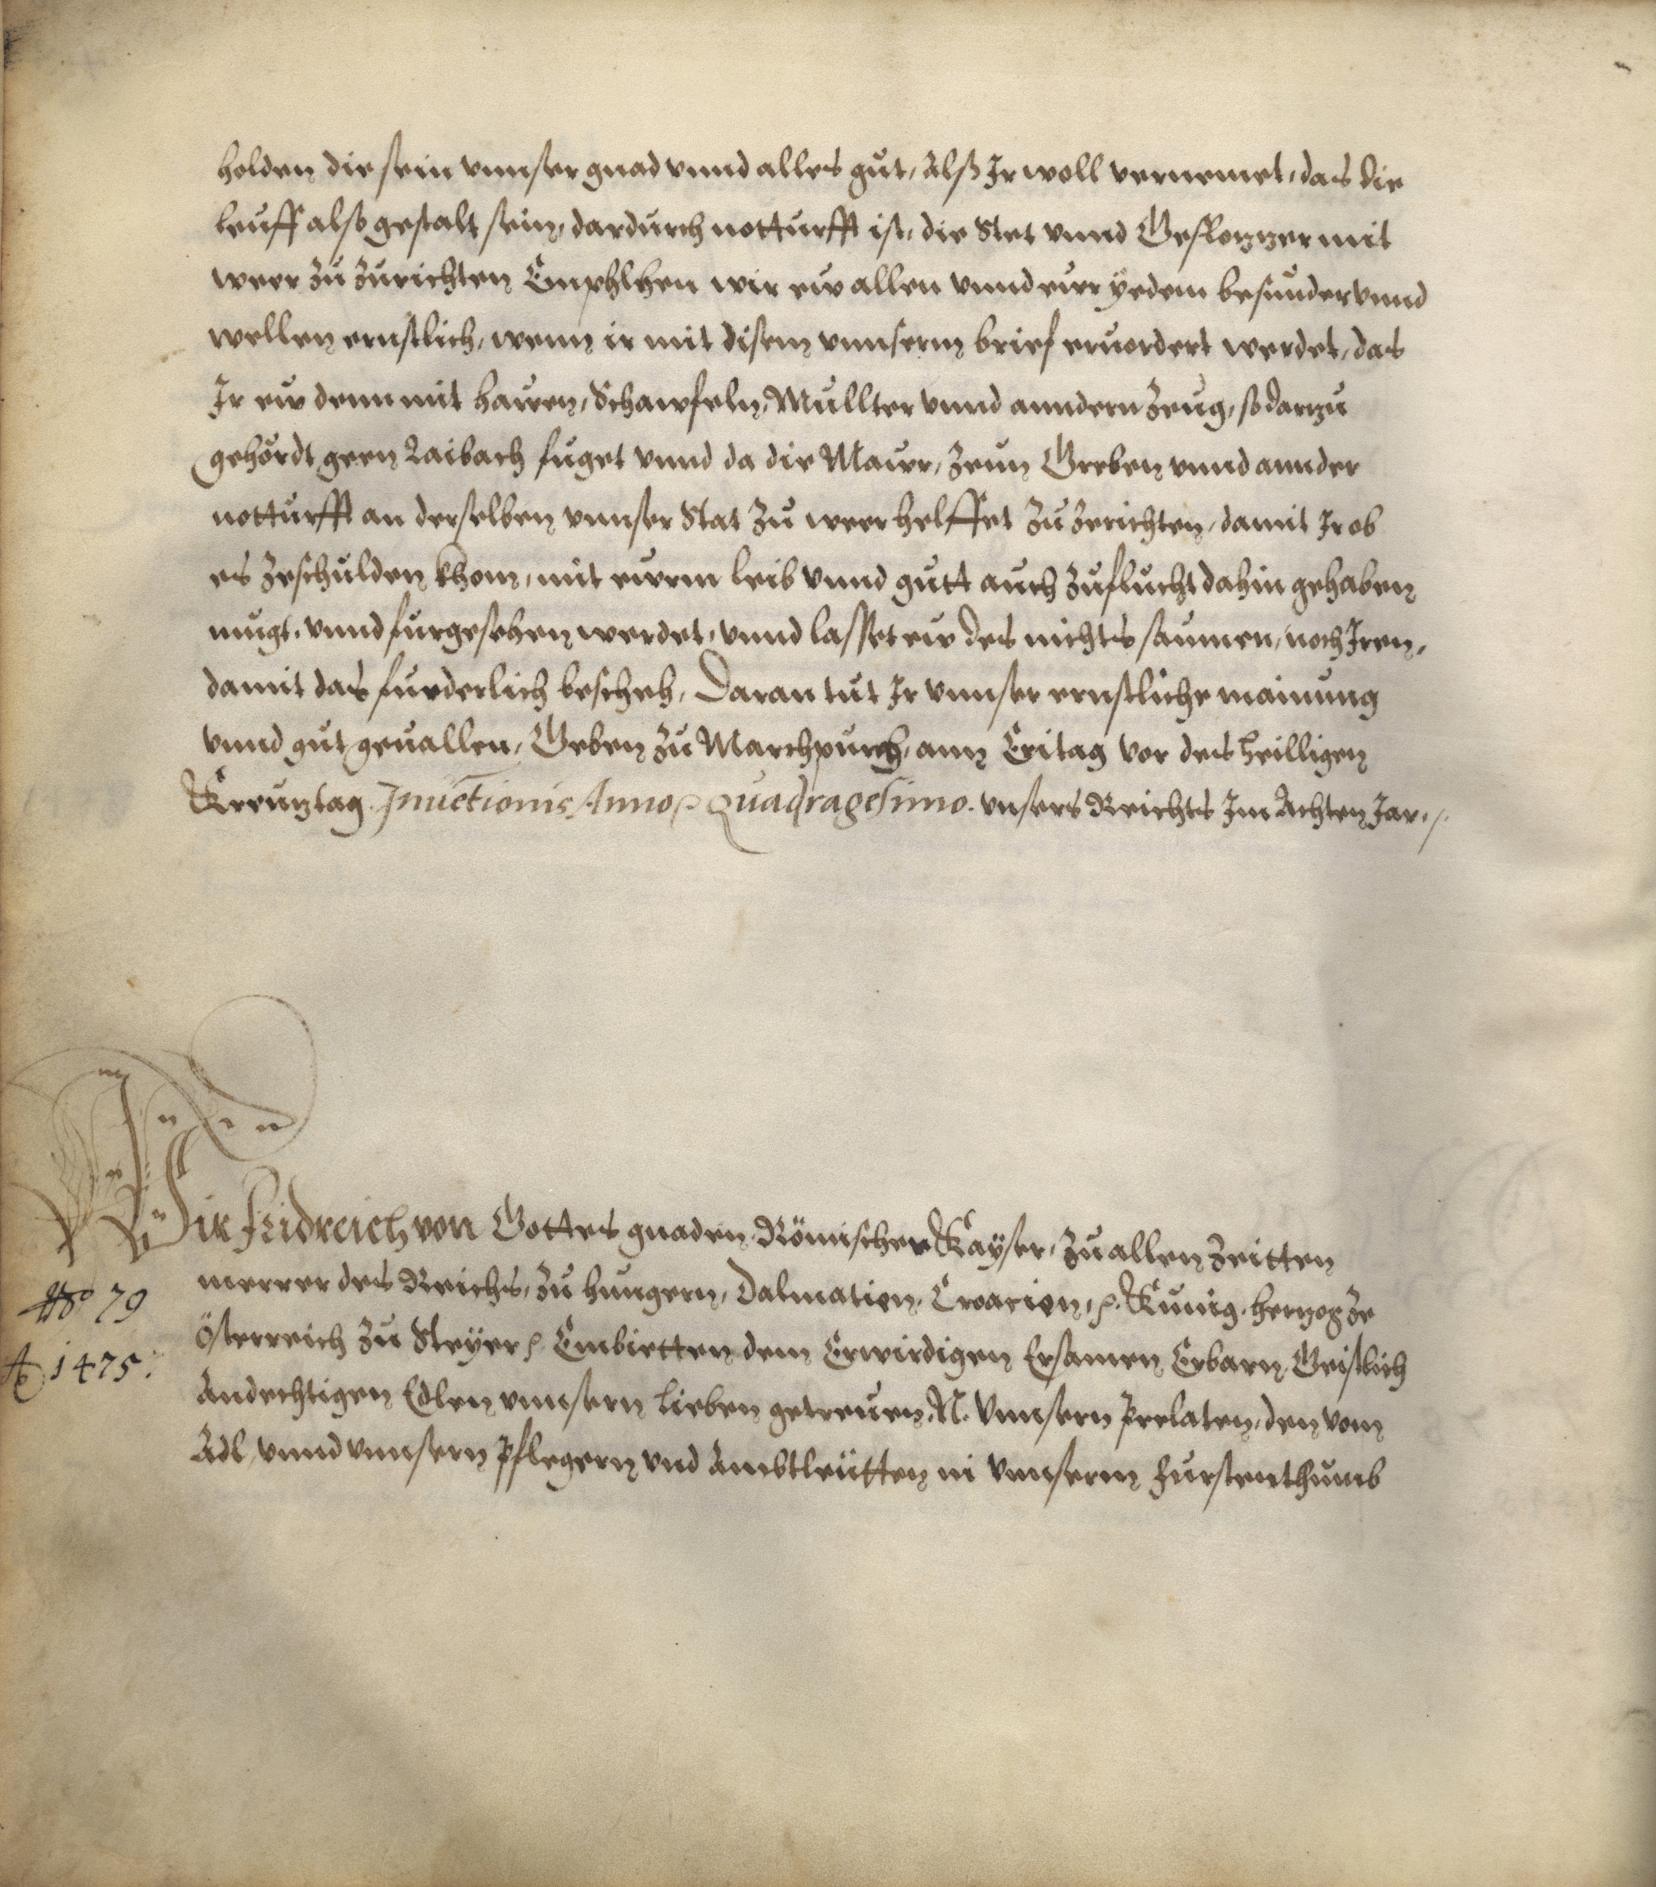 holden die sein vnnser gnad vnnd alles gůt, Alß Ir woll vernemet, das die
leuff also gestalt sein, dardurch notturfft ist, die Stet vnnd Geslosszer mit
weer zů zurichten Emphlhen wir ew allen vnnd eur yedem besunder vnnd
wellen ernstlich, wenn ir mit disem vnnserm brief eruordert werdet, das
Ir ew denn mit hawen, Schawfeln, Mullter vnnd anndern Zeug, so darzu
gehördt geen Laibach fuget vnnd da die Maur, Zeun Greben vnnd annder
notturfft an derselben vnnser Stat zů weer helffet zů zerichten, damit Ir ob
es zeschulden khom, mit ewrm leib vnnd gutt auch zuflucht dahin gehaben
mugt, vnnd furgesehen werdet, vnnd lasset ew des nichts saumen, noch Iren,
damit das furderlich bescheh, Daran tůt Ir vnnser ernstliche mainung
vnnd gůt geuallen, Geben zů Marchpurch, am Eritag vor des heilligen
Kreutztag Inuẽtionis Anno &c Quadragesimo. vnsers Reichts Im Achten Jar.
Wir Fridreich von Gottes gnaden Römischer Kayser, zů allen Zeitten
merrer des Reichs, zů hungern, Dalmatien, Croacien, &c. Kunig, hertzog ze
Österreich zů Steyer &c Embietten dem Erwirdigen Ersamen Erbarn Geistlich
Andechtigen Edlen vnnsern lieben getreuen, N. Vnnsern Prelaten, den vom
Adl, vnnd vnnsern Pflegern vnd Ambtleütten in vnnserm Furstenthumb
No 79
A 1475.